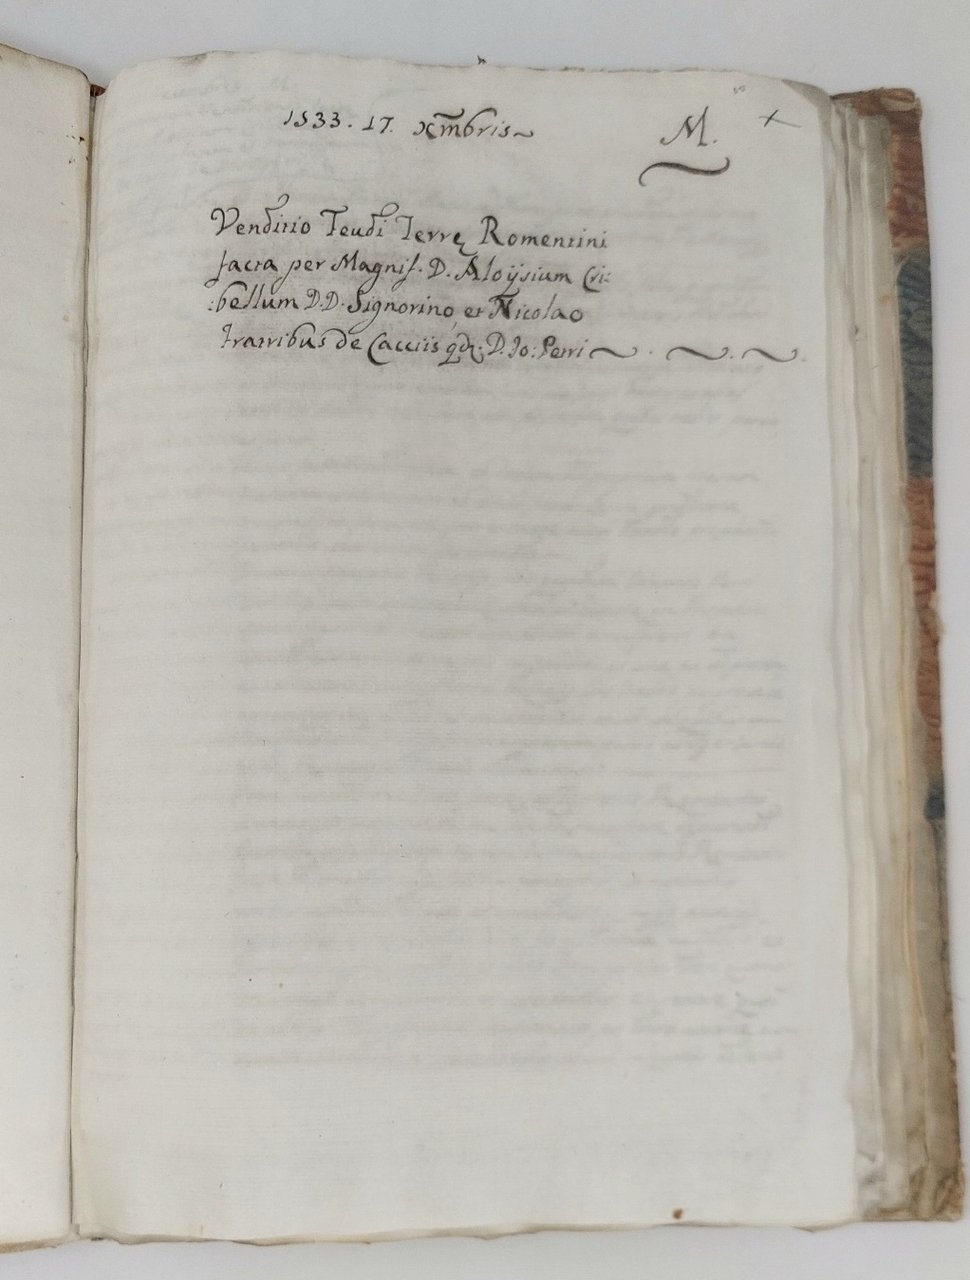 1533. 17. Xmbris
M.
Venditio Feudi Terrę Romentini
facta per Magnif. D. Aloÿsium Cri:
:bellum D.D. Signorino, et Nicolao
fratribus de Cacciis qd: D. Jo: Petri